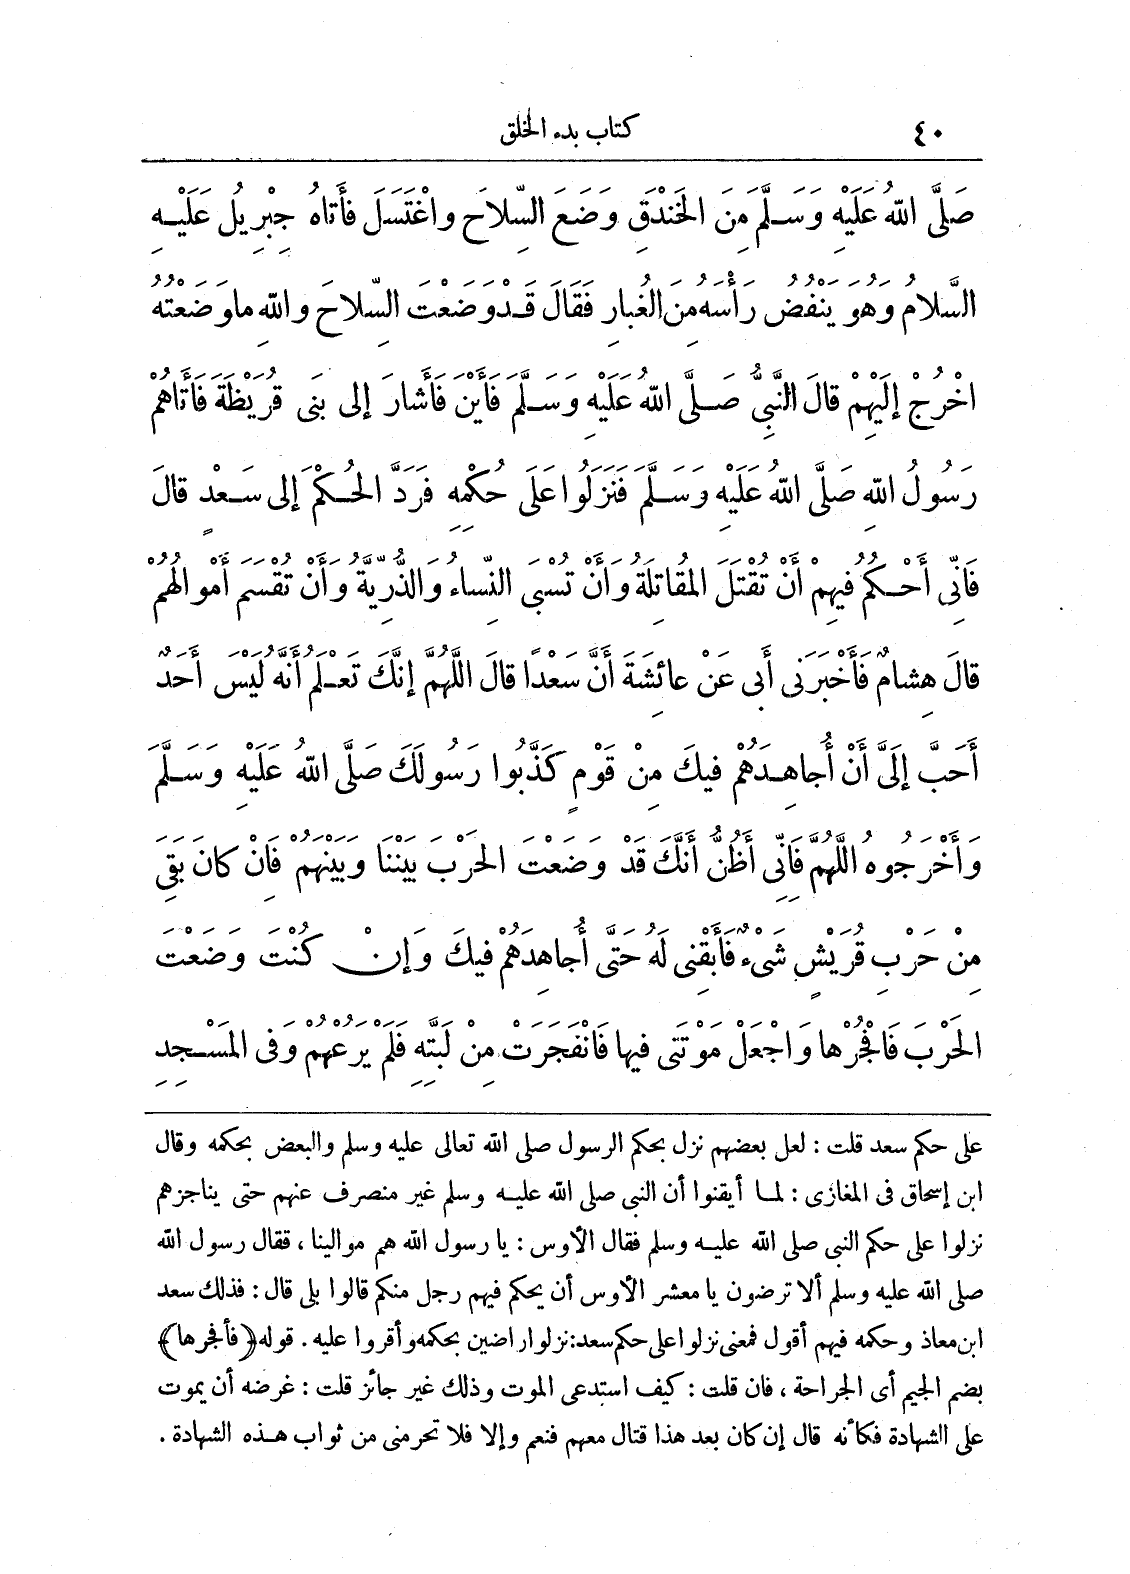 ٤٠
كتاب بدء الخلق
صَلَّى اللهُ عَلَيْهِ وَسَلَّمَ مِنَ الخَنْدَقِ وَضَعَ السِّلَاحَ وَاغْتَسَلَ فَأَتَاهُ جِبْرِيلُ عَلَيْهِ
السَّلَامُ وَهُوَ يَنْفُضُ رَأْسَهُ مِنَ الغُبَارِ فَقَالَ قَدْ وَضَعْتَ السِّلَاحَ وَاللهِ مَا وَضَعْتُهُ
اخْرُجْ إِلَيْهِمْ قَالَ النَّبِيُّ صَلَّى اللهُ عَلَيْهِ وَسَلَّمَ فَأَيْنَ فَأَشَارَ إِلَى بَنِى قُرَيْظَةَ فَأَتَاهُمْ
رَسُولُ اللهِ صَلَّى اللهُ عَلَيْهِ وَسَلَّمَ فَنَزَلُوا عَلَى حُكْمِهِ فَرَدَّ الحُكْمَ إِلَى سَعْدٍ قَالَ
فَانِّى أَحْكُمُ فِيهِمْ أَنْ تُقْتَلَ المُقَاتِلَةُ وَأَنْ تُسْبَى النِّسَاءُ وَالذُّرِّيَّةُ وَأَنْ تُقْسَمَ أَمْوَالُهُمْ
قَالَ هِشَامٌ فَأَخْبَرَنِى أَبِى عَنْ عَائِشَةَ أَنَّ سَعْدًا قَالَ اللَّهُمَّ إِنَّكَ تَعْلَمُ أَنَّهُ لَيْسَ أَحَدٌ
أَحَبَّ إِلَىَّ أَنْ أُجَاهِدَهُمْ فِيكَ مِنْ قَوْمٍ كَذَّبُوا رَسُولَكَ صَلَّى اللهُ عَلَيْهِ وَسَلَّمَ
وَأَخْرَجُوهُ اللَّهُمَّ فَانِّى أَظُنُّ أَنَّكَ قَدْ وَضَعْتَ الحَرْبَ بَيْنَنَا وَبَيْنَهُمْ فَانْ كَانَ بَقِىَ
مِنْ حَرْبِ قُرَيْشٍ شَىْءٌ فَأَبْقِنِى لَهُ حَتَّى أُجَاهِدَهُمْ فِيكَ وَإِنْ كُنْتَ وَضَعْتَ
الحَرْبَ فَافْجُرْهَا وَاجْعَلْ مَوْتَتِى فِيهَا فَانْفَجَرَتْ مِنْ لَبَّتِهِ فَلَمْ يَرُعْهُمْ وَفِى المَسْجِدِ
على حكم سعد قلت : لعل بعضهم نزل بحكم الرسول صلى الله تعالى عليه وسلم والبعض بحكمه وقال
ابن إسحاق فى المغازى : لما أيقنوا أن النبى صلى الله عليه وسلم غير منصرف عنهم حتى يناجزهم
نزلوا على حكم النبى صلى الله عليه وسلم فقال الأوس : يا رسول الله هم موالينا ، فقال رسول الله
صلى الله عليه وسلم ألا ترضون يا معشر الأوس أن يحكم فيهم رجل منكم قالوا بلى قال : فذلك سعد
ابن معاذ وحكمه فيهم أقول فمعنى نزلوا على حكم سعد: نزلوا راضين بحكمه وأقروا عليه . قوله (فأفجرها)
بضم الجيم أى الجراحة ، فان قلت : كيف استدعى الموت وذلك غير جائز قلت : غرضه أن يموت
على الشهادة فكأنه قال إن كان بعد هذا قتال معهم فنعم وإلا فلا تحرمنى من ثواب هذه الشهادة .